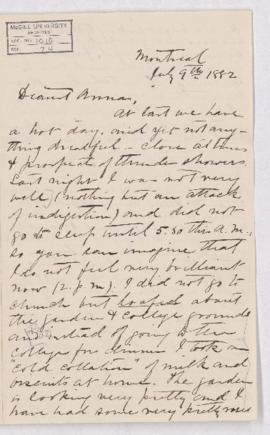 McGILL UNIVERSITY
ARCHIVES
ACC. NO. 1010
REF. 74
Montreal
July 9th 1882
Dearest Anna,
At last we have
a hot day, and yet not any-
thing dreadful - close at times
& prospects of thunder showers.
Last night I was not very
well (nothing but an attack
of indigestion) and did not
go to sleep until 5.30 this a.m.
So you can imagine that
I do not feel very brilliant
now (2 p.m.). I did not go to
church but loafed about
the garden & college grounds
and instead of going to the
College for dinner I took a
"cold collation" of milk and
biscuits at home. The garden
is looking very pretty and I
have had some very pretty roses